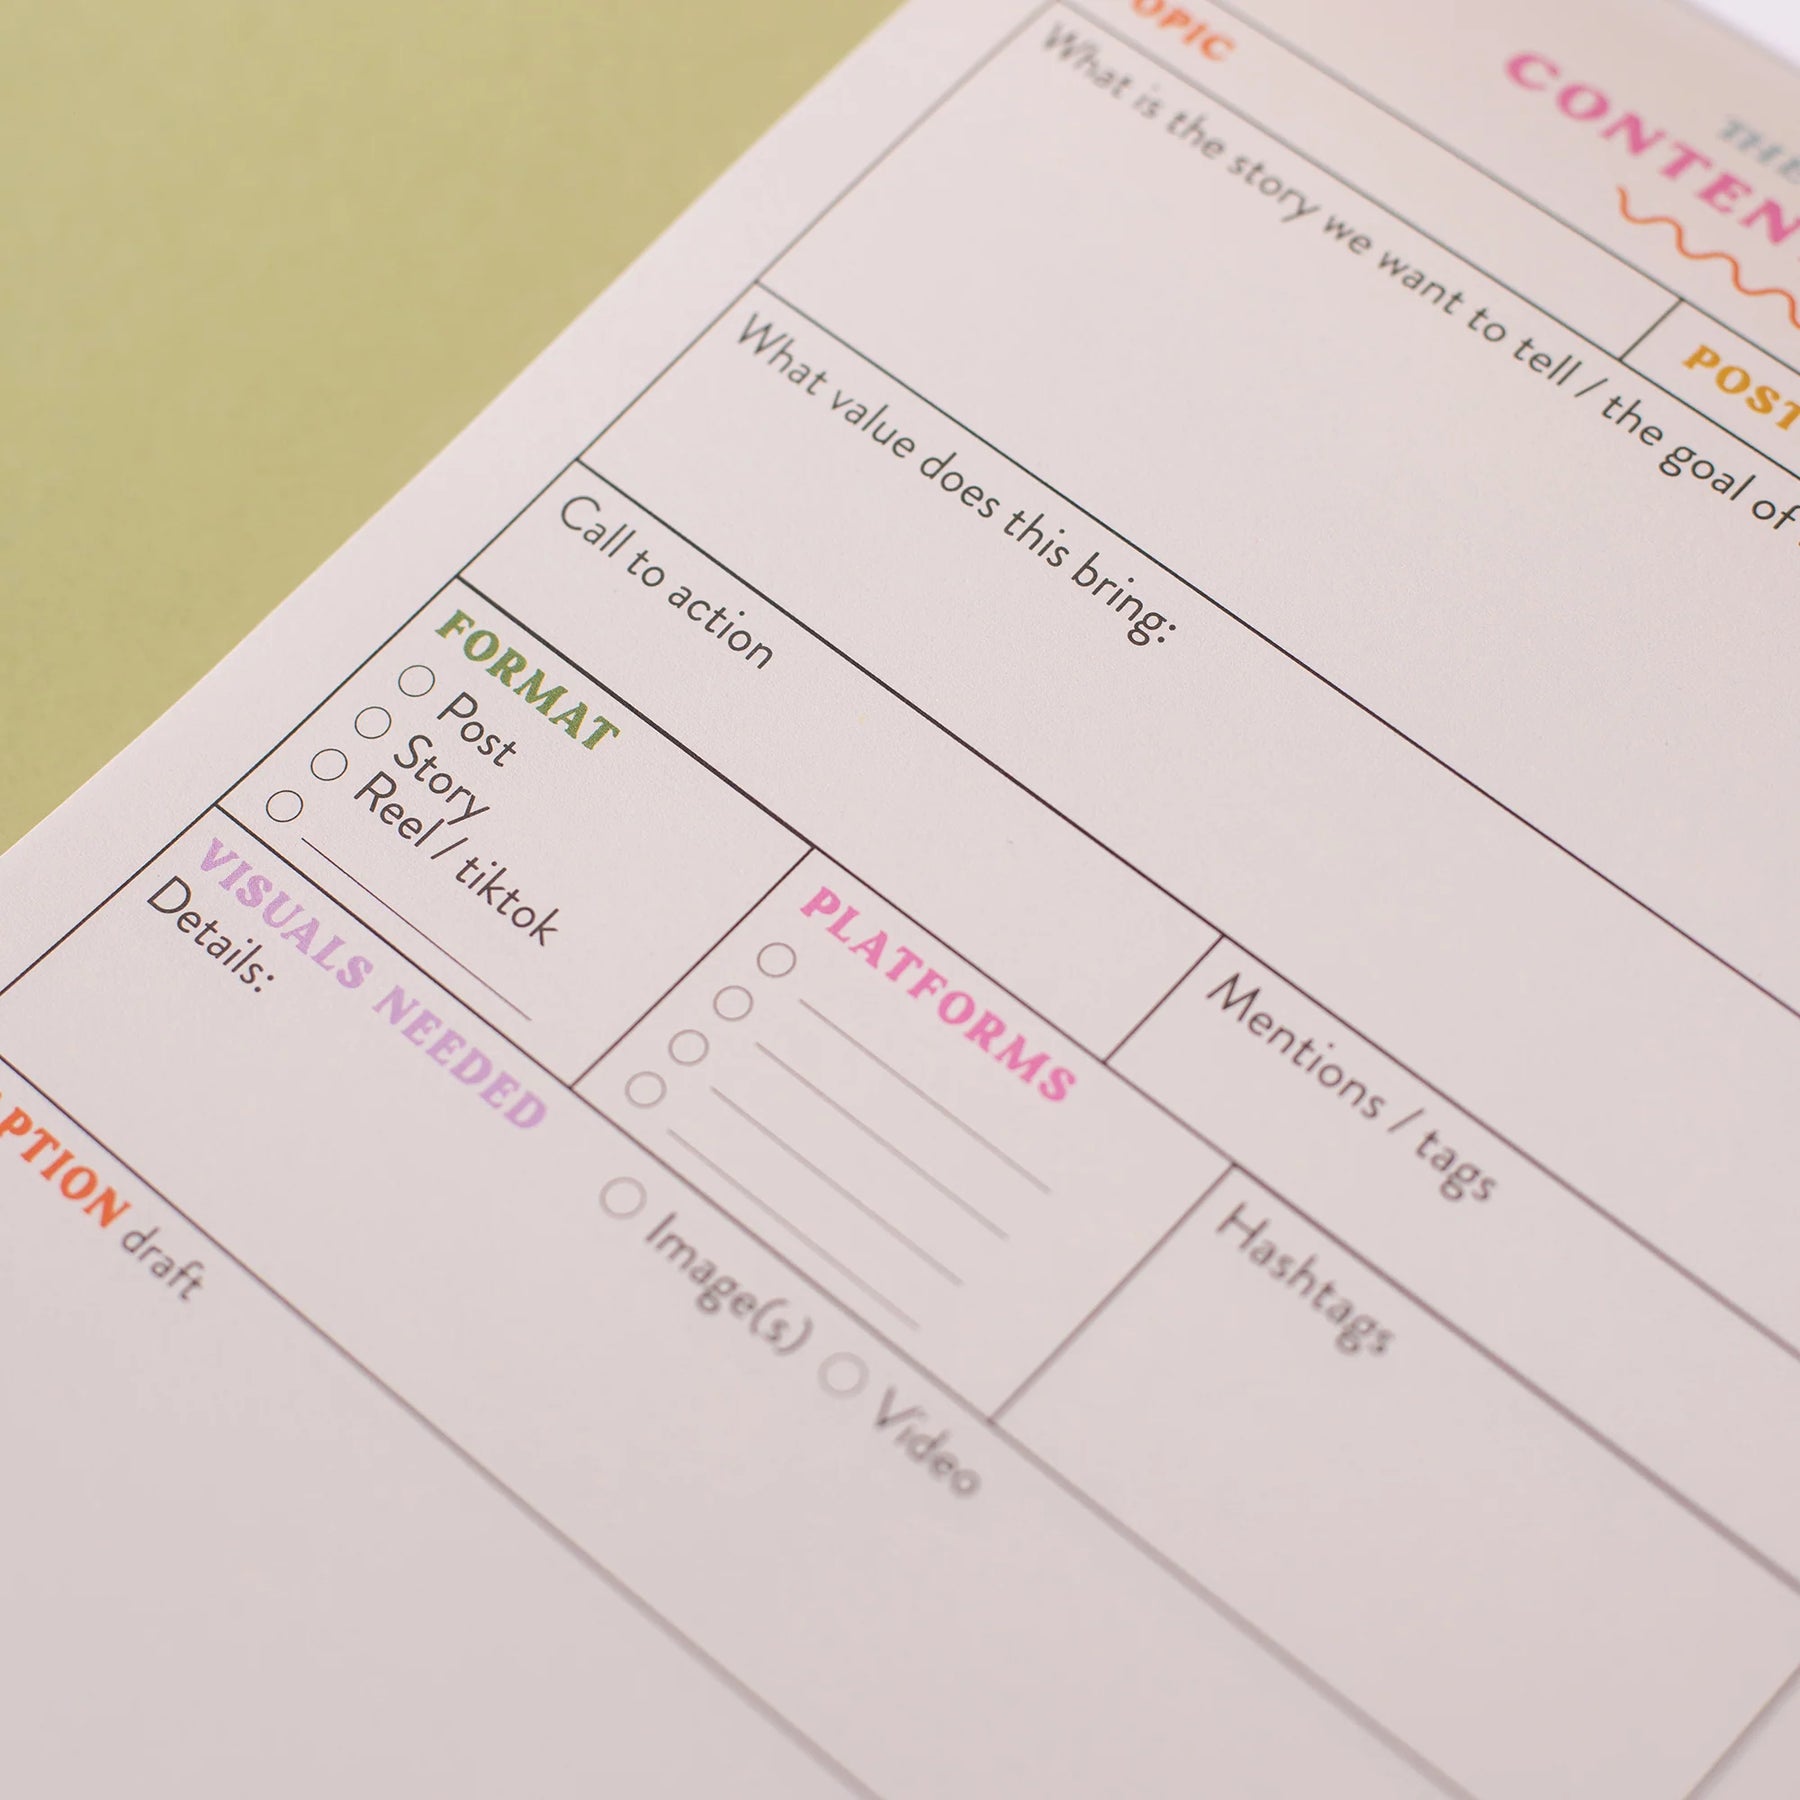 THE
CONTEN
OPIC
POST
What is the story we want to tell / the goal of
What value does this bring:
Call to action
FORMAT
Post
Story
Reel / tiktok
PLATFORMS
Mentions / tags
Hashtags
VISUALS NEEDED
Details:
Image(s)
Video
APTION draft